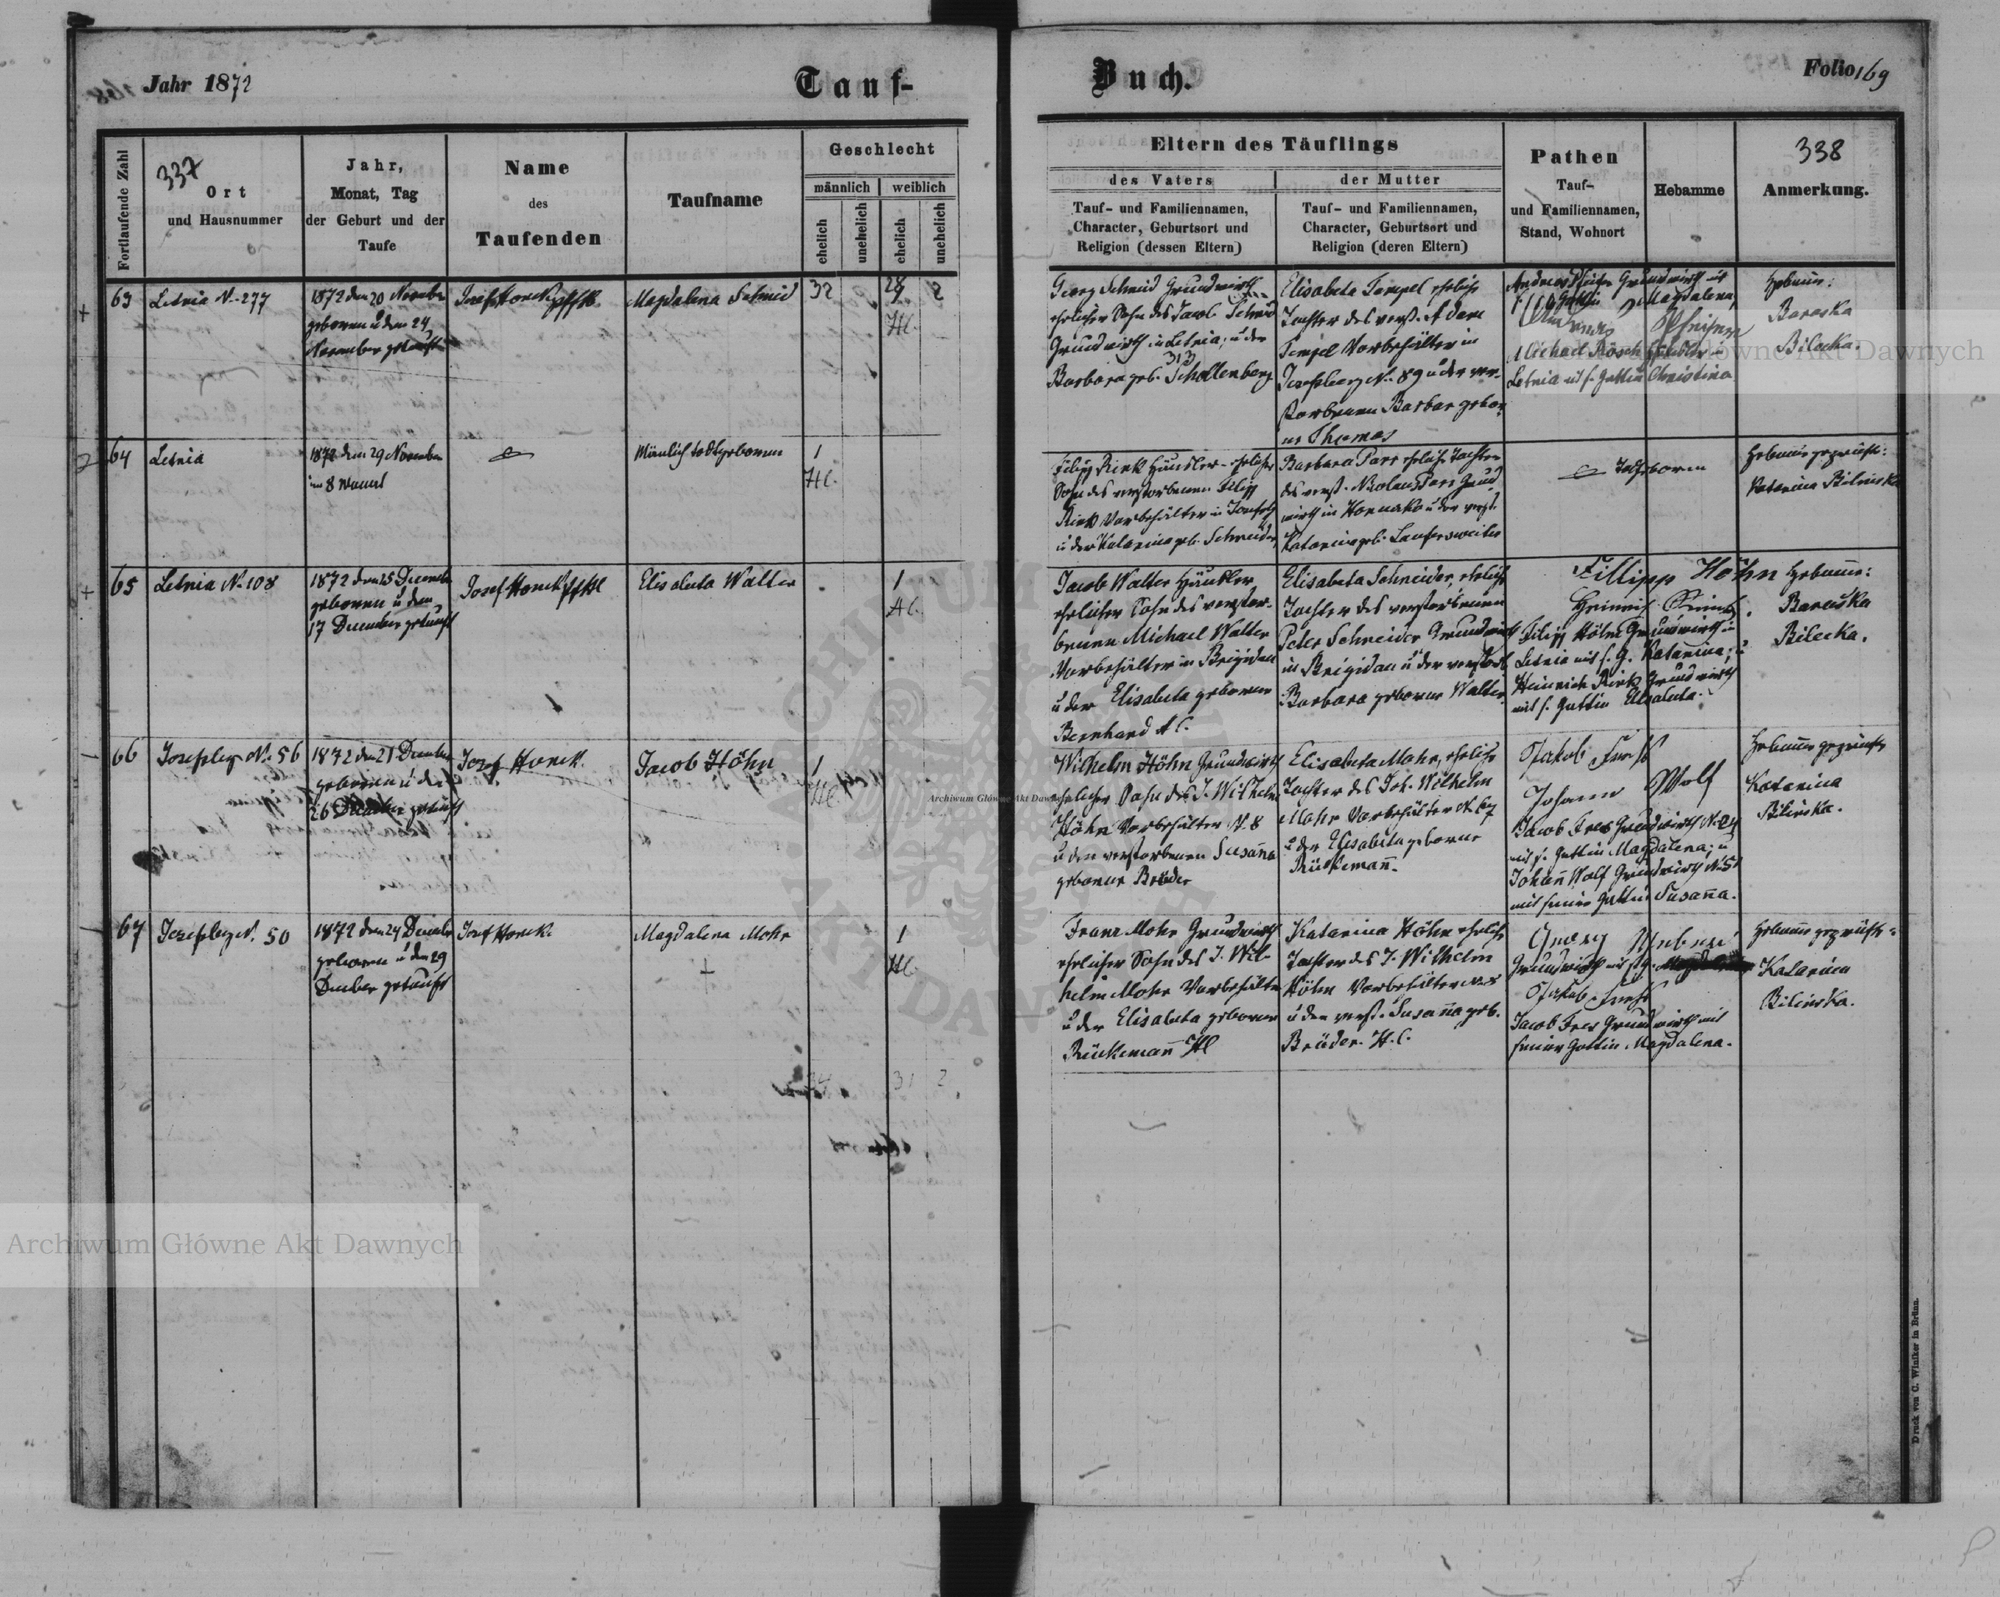 Jahr 1872
Tauf-
Buch.
Folio 169
Fortlaufende Zahl
337
Ort
und Hausnummer
Jahr,
Monat, Tag
der Geburt und der
Taufe
Name
des
Taufenden
Taufname
Geschlecht
männlich
weiblich
ehelich
unehelich
ehelich
unehelich
Eltern des Täuflings
des Vaters
der Mutter
Tauf- und Familiennamen,
Character, Geburtsort und
Religion (dessen Eltern)
Tauf- und Familiennamen,
Character, Geburtsort und
Religion (deren Eltern)
Pathen
Tauf-
und Familiennamen,
Stand, Wohnort
Hebamme
338
Anmerkung.
63
Letnia N. 277
1872 den 20 November
geboren u den 24
November getauft
Josef Horack
Magdalena Schmid
32
2
H.C.
Georg Schmid Grundwirth
ehelicher Sohn des Jacob Schmid
Grundwirth in Letnia, u der
Barbara geb. Schollenberg
Elisabeta Tempel eheliche
Tochter des verst. Adam
Tempel Vorbehälter in
Josefsberg N. 89 u der ver-
storbenen Barbar gebor
ne Thomas
Andreas Pfeifer Grundwirth mit
Gattin Magdalena
Andreas Pfeifer
Michael Rösch
Letnia mit s. Gattin Christina
Hebamm:
Baraska
Bilecka.
64
Letnia
1872 den 29 November
im 8 Monat
Mänlich todtgeboren
1
H.C.
Filipp Rink Häusler ehelicher
Sohn des verstorbenen Filipp
Rink Vorbehälter in Josefsbg
u der Katarina geb. Schneider
Barbara Parr eheliche Tochter
des verst. Nikolaus Parr Grund
wirth in u der verst.
Katarina geb. Laufersweiler
Todtgeboren
Hebamm geprüfte:
Katarina Bilinska
65
Letnia N. 108
1872 den 15 December
geboren u den
17 December getauft
Josef Horack
Elisabeta Walter
1
H.C.
Jacob Walter Häusler
ehelicher Sohn des verstor-
benen Michael Walter
Vorbehälter in Brigidau
u der Elisabeta geborene
Bernhard H.C.
Elisabeta Schneider, eheliche
Tochter des verstorbenen
Peter Schneider Grundwirth
in Brigidau u der verstorb.
Barbara geborne Walter.
Fillipp Höhn
Filipp Höhn Grundwirth in
Letnia mit s. G. Katarina; u
Heinrich Rink Grundwirth
mit s. Gattin Elisabeta.
Hebamme:
Baraska
Bilecka.
66
Josefsberg N. 56
1872 den 21 December
geboren u den
26 December getauft
Josef Horack.
Jacob Höhn
1
H.C.
Wilhelm Höhn Grundwirth
ehelicher Sohn des J. Wilhelm
Höhn Vorbehälter N. 8
u der verstorbenen Susanna
geborne Bräder
Elisabeta Mohr, eheliche
Tochter des Joh. Wilhelm
Mohr Vorbehälter N. 67
u der Elisabeta geborne
Rückemann.
Jakob
Johann Wolf
Jacob Grundwirth N. 24
mit s. Gattin Magdalena; u
Johann Wolf Grundwirth N. 51
mit seiner Gattin Susanna.
Hebamm geprüfte
Katarina
Bilinska.
67
Josefsberg N. 50
1872 den 24 December
geboren u den 29
December getauft
Josef Horack.
Magdalena Mohr
1
H.C.
Franz Mohr Grundwirth
ehelicher Sohn des J. Wil-
helm Mohr Vorbehälter
u der Elisabeta geborene
Rückemann HC
Katarina Höhn eheliche
Tochter des J. Wilhelm
Höhn Vorbehälter N. 8
u der verst. Susanna geb.
Bräder. H.C.
Georg
Grundwirth mit
Jakob
Jacob Grundwirth mit
seiner Gattin Magdalena.
Hebamm geprüfte:
Katarina
Bilinska.
34
31
2
Druck von C. Winiker in Brünn.
Archiwum Główne Akt Dawnych